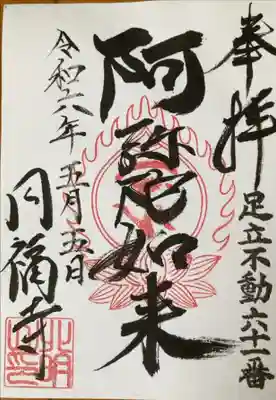 奉拝
足立不動六十一番
阿弥陀如来
令和六年五月五日
円福寺